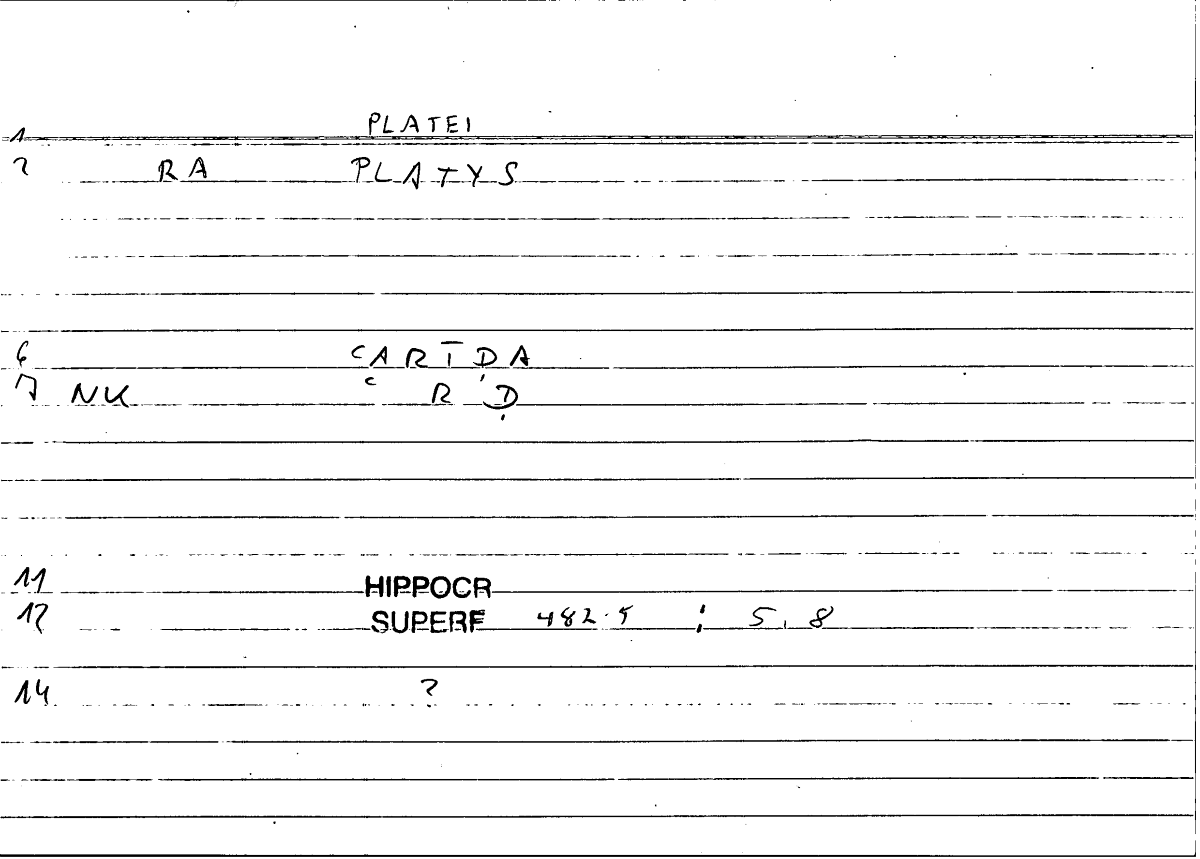 1 PLATEI
2 RA PLATYS
6 ʿARĪḌA
7 NK ʿ R Ḍ
11 HIPPOCR
12 SUPERF 482.5 ; 5, 8
14 ?